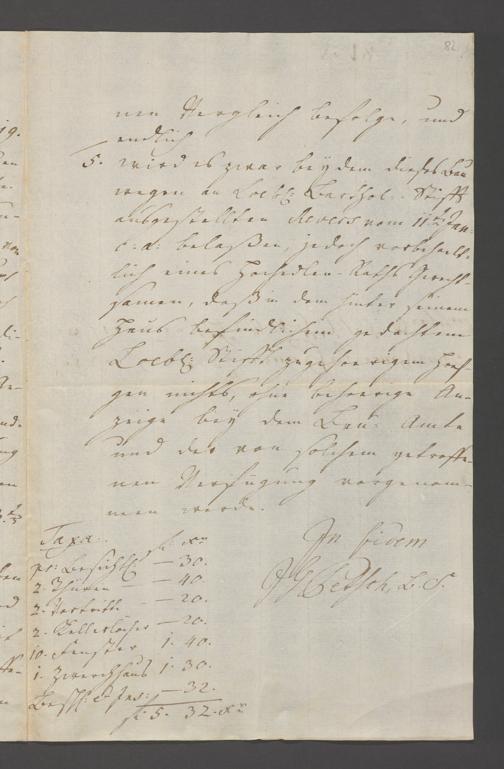 82
nen Vergleich befolge, und
endlich
5. wird es zwar bey dem dieses Bau
wegen an Loebl: Barthol: Stifft
ausgestellten Revers vom 11ten Jan:
c: a: belaßen, jedoch vorbehalt-
lich eines Hochedlen Raths Gerecht-
samen, daß in dem hinter seinem
Haus befindlichem gedachtem
Loebl: Stifft zugehoerigem Hoff-
gen nichts, ohne behoerige An-
zeige bey dem Bau: Amte
und der von solchem getroffe-
nen Verfügung vorgenom-
men werde.
In fidem
Taxa. fl. xr
pr: Besichtg — 30.
2. Thüren — 40.
2. Vortritt — 20.
2. Kellerlöcher — 20.
10. Fenster 1. 40.
1. Zwerchhaus 1. 30.
— 32.
fl: 5. 32. xr